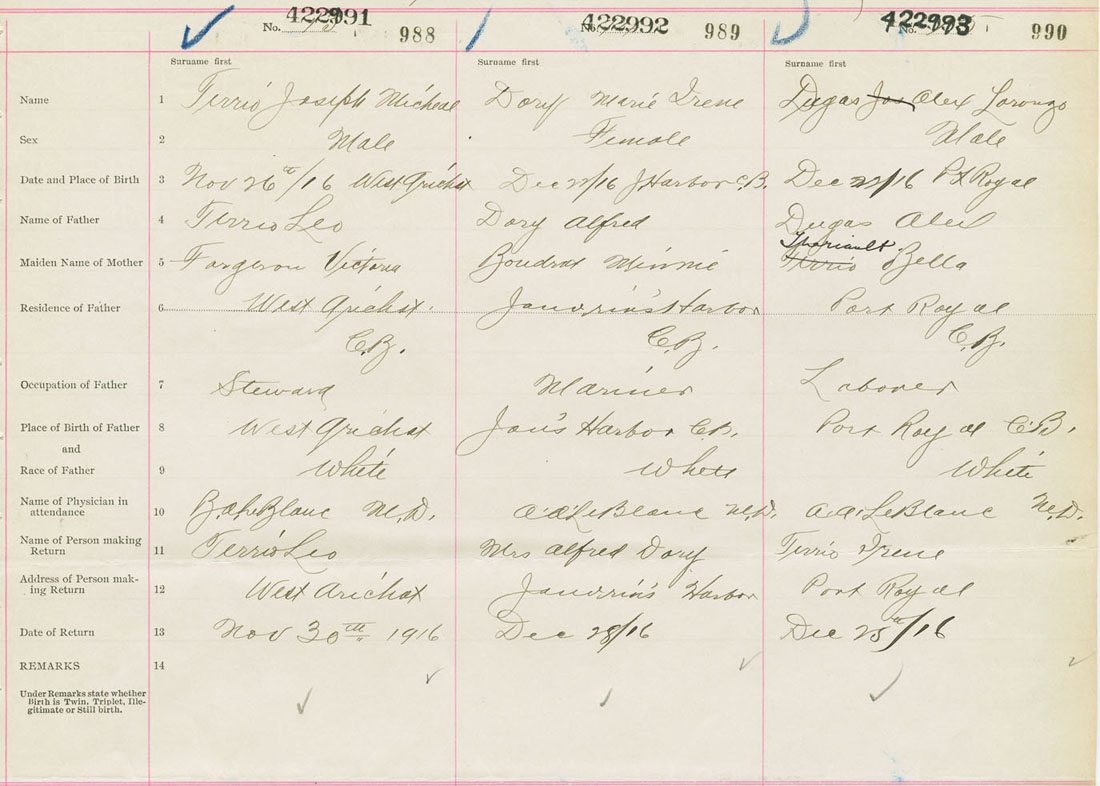 No. 422991 988 No. 422992 989 No. 422993 990
Surname first Surname first Surname first
Name 1 Terrio Joseph Micheal Dory Marie Irene Dugas Jos Alex Lorenzo
Sex 2 Male Female Male
Date and Place of Birth 3 Nov 26th/16 West Arichat Dec 22/16 J. Harbor C.B. Dec 22/16 Pt Royal
Name of Father 4 Terrio Leo Dory Alfred Dugas Alex
Theriault
Maiden Name of Mother 5 Forgeron Victoria Boudrot Minnie Terrio Bella
Residence of Father 6 West Arichat Janvrins Harbor Port Royal
C.B. C.B. C.B.
Occupation of Father 7 Steward Mariner Laborer
Place of Birth of Father 8 West Arichat Jan's Harbor C.B. Port Royal C.B.
and
Race of Father 9 White White White
Name of Physician in
attendance 10 LeBlanc M.D. A.A. LeBlanc M.D. A.A. LeBlanc M.D.
Name of Person making
Return 11 Terrio Leo Mrs Alfred Dory Terrio Irene
Address of Person mak-
ing Return 12 West Arichat Janvrins Harbor Port Royal
Date of Return 13 Nov 30th 1916 Dec 28/16 Dec 25th/16
REMARKS 14
Under Remarks state whether
Birth is Twin, Triplet, Ille-
gitimate or Still birth.